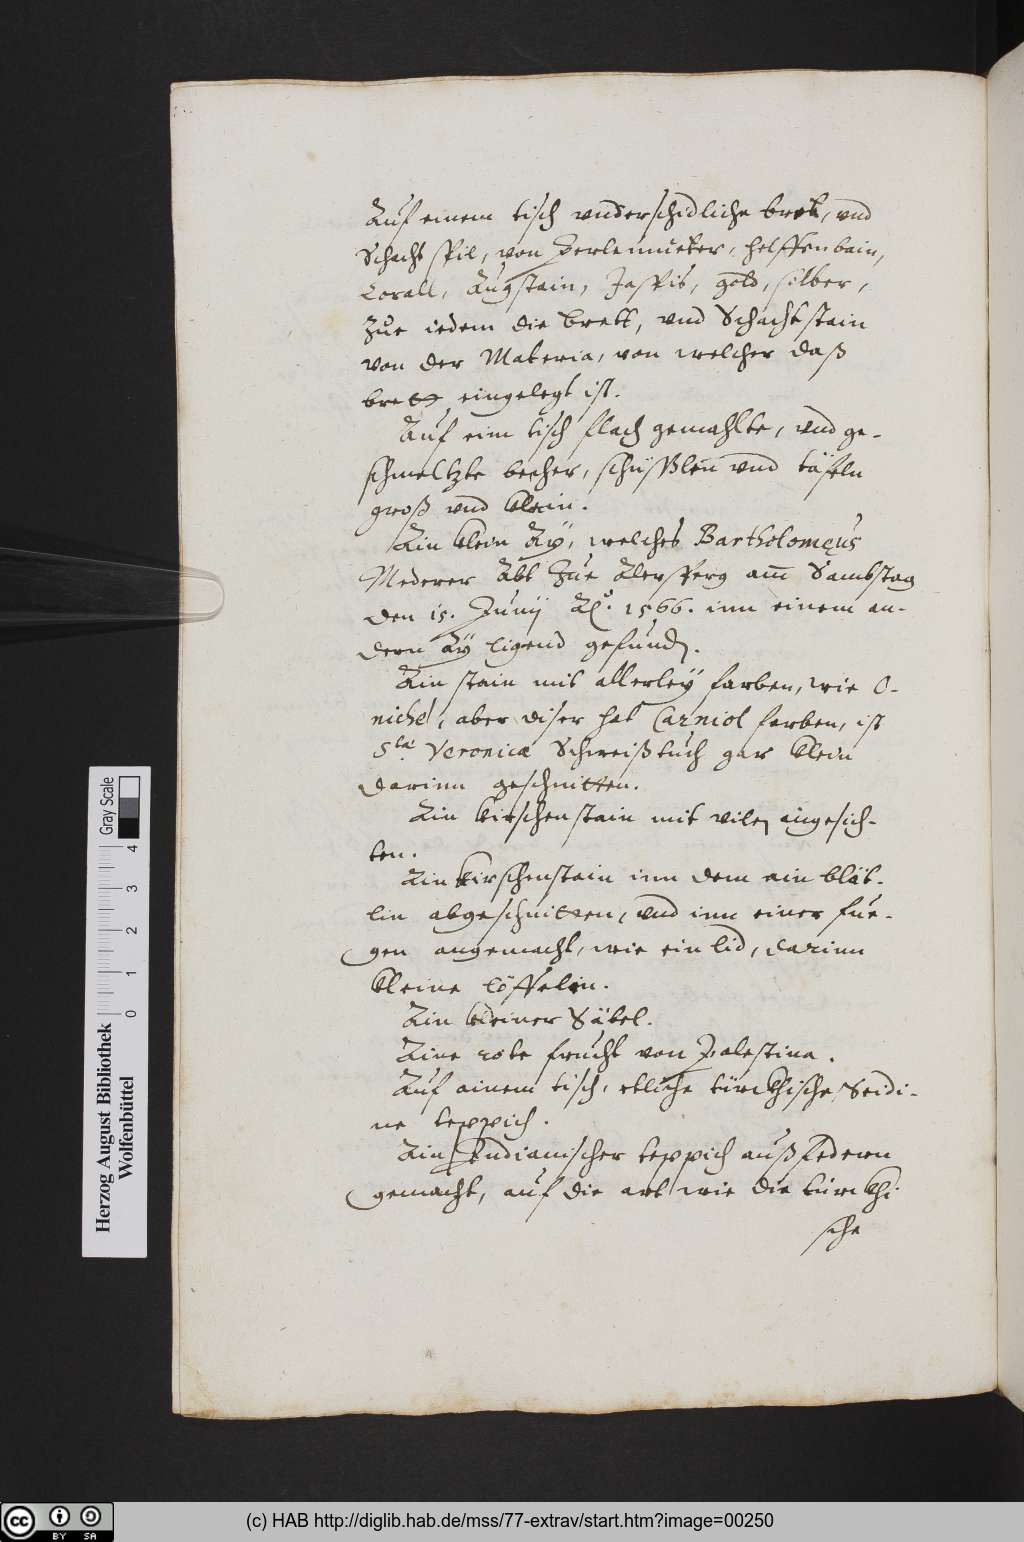 Auf einem tisch vnderschidliche bret, vnd
Schacht spil, von Perlenmueter, helffenbain,
Corall, Augstain, Jaspis, gold, silber,
Zue iedem die brett, vnd Schachtstain
von der Materia, von welcher daß
brett eingelegt ist.
Auf eim tisch flach gemahlte, vnd ge-
schmeltzte becher, schüßlen vnd täfeln
groß vnd klein.
Ain klein Aÿ, welches Bartholomęus
Mederer Abt Zue Aderspferg am̅ Sambstag
den 15. Junij Aō. 1566. inn einem an-
dern Aÿ ligend gefunden.
Ain stain mit allerleÿ farben, wie O-
nichel, aber diser hat Carniol farben, ist
S.ta Veronicæ Schweißtuch gar klein
darinn geschnitten.
Ain kirschenstain mit vilen angesich-
ten.
Ain kirschenstain inn dem ain blät-
lin abgeschnitten, vnd inn einer fue-
gen angemacht, wie ein lid, darinn
kleine löffelin.
Ain kleiner Säbel.
Aine rote frucht von Palestina.
Auf ainem tisch, etliche türckhische Seidi-
ne teppich.
Ain Indianischer teppich auß federn
gemacht, auf die art wie die türckhi-
sche
Herzog August Bibliothek
Wolfenbüttel
0 1 2 3 4
Gray Scale
cc BY SA
(c) HAB http://diglib.hab.de/mss/77-extrav/start.htm?image=00250